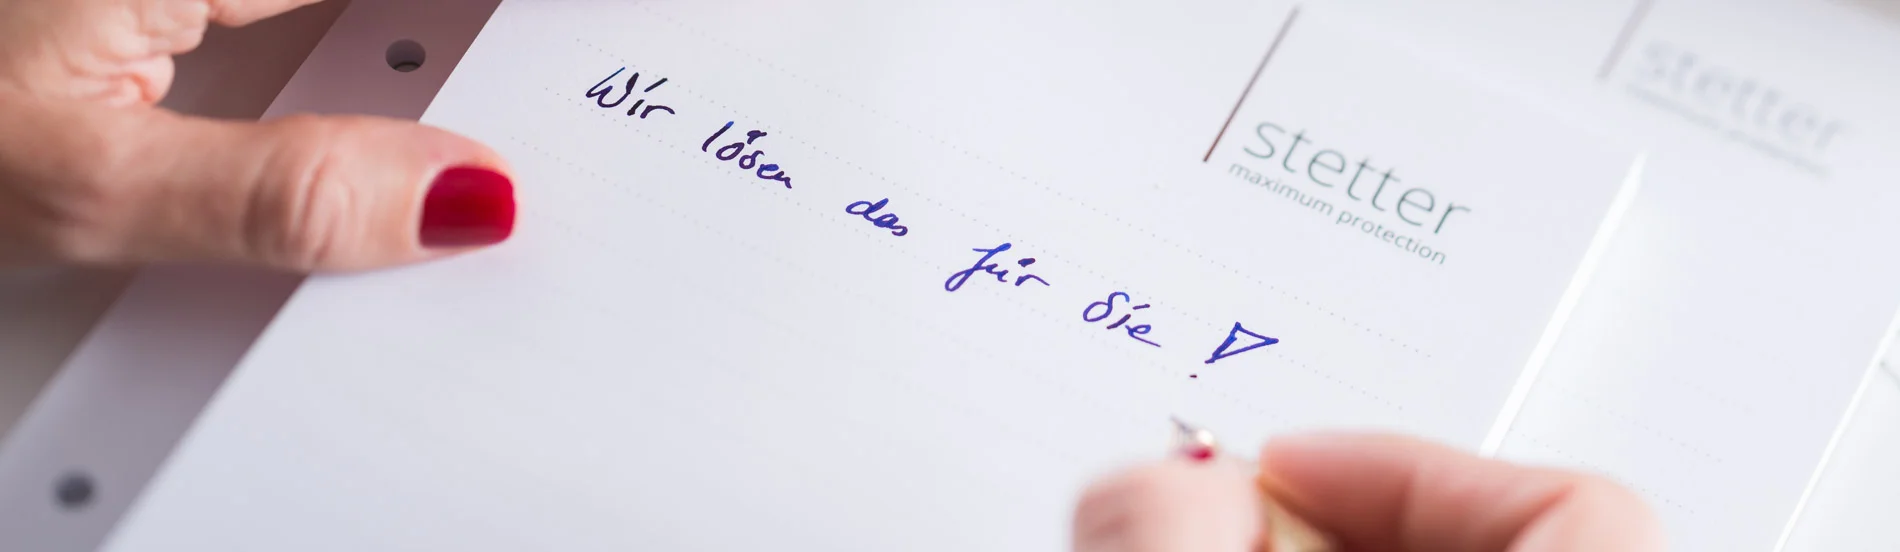 Wir lösen das für Sie!
stetter
maximum protection
stetter